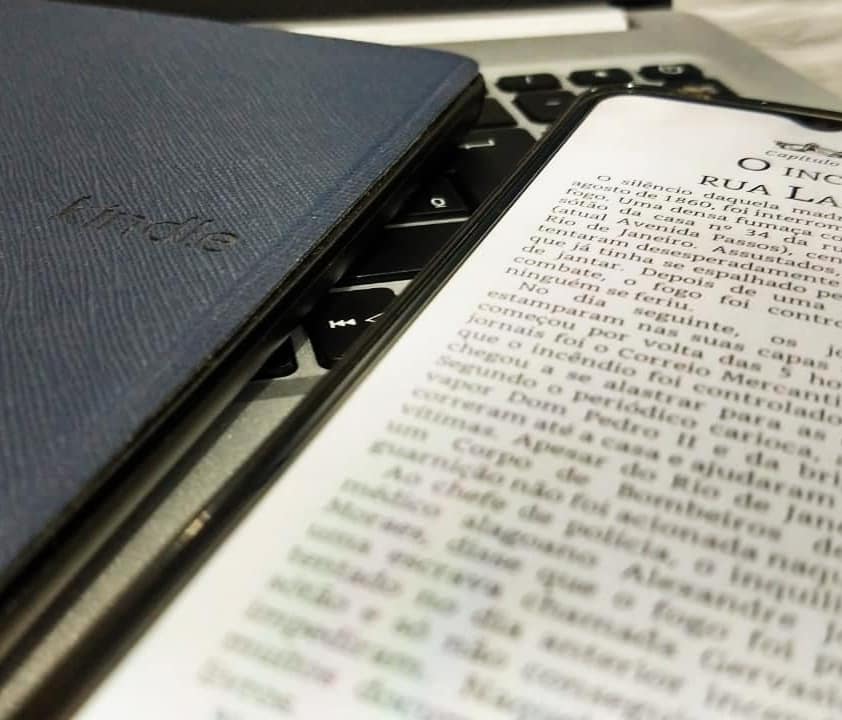 kindle
Capítulo
O INC
RUA LA
O silêncio daquela madr
agosto de 1860, foi interrom
fogo. Uma densa fumaça co
sótão da casa nº 34 da ru
(atual Avenida Passos), cen
Rio de Janeiro. Assustados,
tentaram desesperadamente
que já tinha se espalhado pe
de jantar. Depois de uma
combate, o fogo foi contro
ninguém se feriu.
No dia seguinte, os jo
estamparam nas suas capas
começou por volta das 5 ho
jornais foi o Correio Mercanti
que o incêndio foi controlado
chegou a se alastrar para as
Segundo o periódico carioca,
vapor Dom Pedro II e da bri
correram até a casa e ajudaram
vítimas. Apesar do Rio de Jane
um Corpo de Bombeiros de
guarnição não foi acionada naqu
Ao chefe de polícia, o inquili
médico alagoano Alexandre J
Moraes, disse que o fogo foi p
uma escrava chamada Gervasi
tentado no dia anterior ince
sótão e só não conseg
impediram.